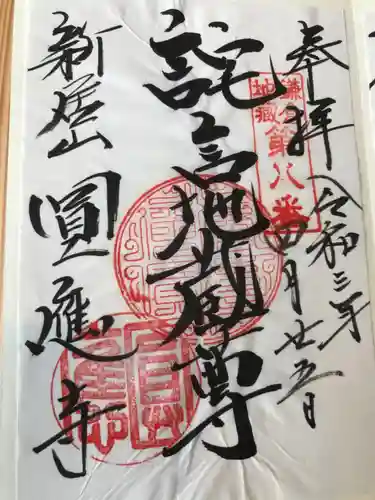 奉拝
令和三年
四月廿五日
鎌倉
地藏
第八番
詫言地蔵尊
新居山
圓應寺